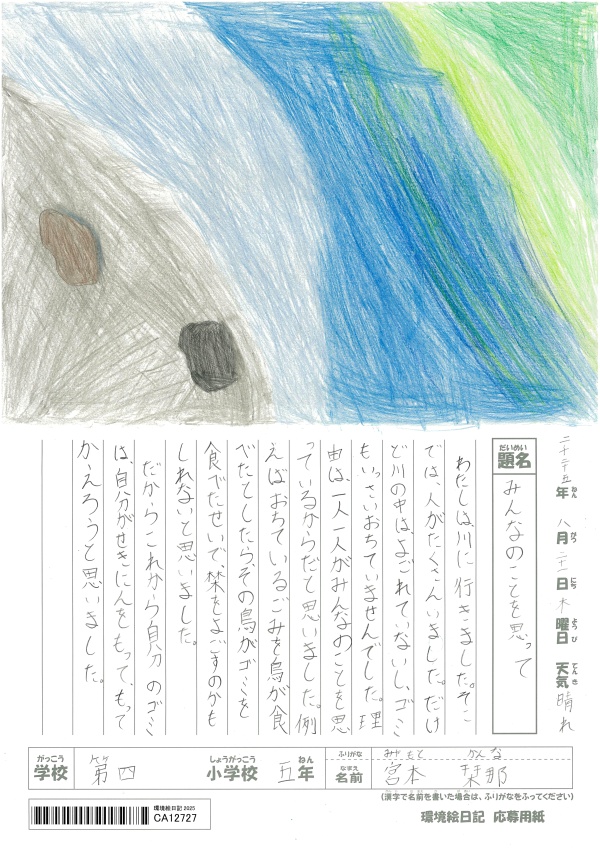 二千二十五年 八月 二十一日 木曜日 天気 晴れ
ねん がつ にち ようび てんき
だいめい
題名 みんなのことを思って
わたしは、川に行きました。そこ
では、人がたくさんいました。だけ
ど川の中は、よごれていないし、ゴミ
もいっさいおちていませんでした。理
由は、一人一人がみんなのことを思
っているからだと思いました。例
えばおちているごみを鳥が食
べたとしたら、その鳥がゴミを
食べたせいで、をよごすのかも
しれないと思いました。
だからこれから自分のゴミ
は、自分がせきにんをもって、もって
かえろうと思いました。
がっこう しょうがっこう ねん ふりがな みやもと かんな
学校 第四 小学校 五年 なまえ 名前 宮本 栞那
(漢字で名前を書いた場合は、ふりがなをふってください)
環境絵日記 2025
CA12727
環境絵日記 応募用紙